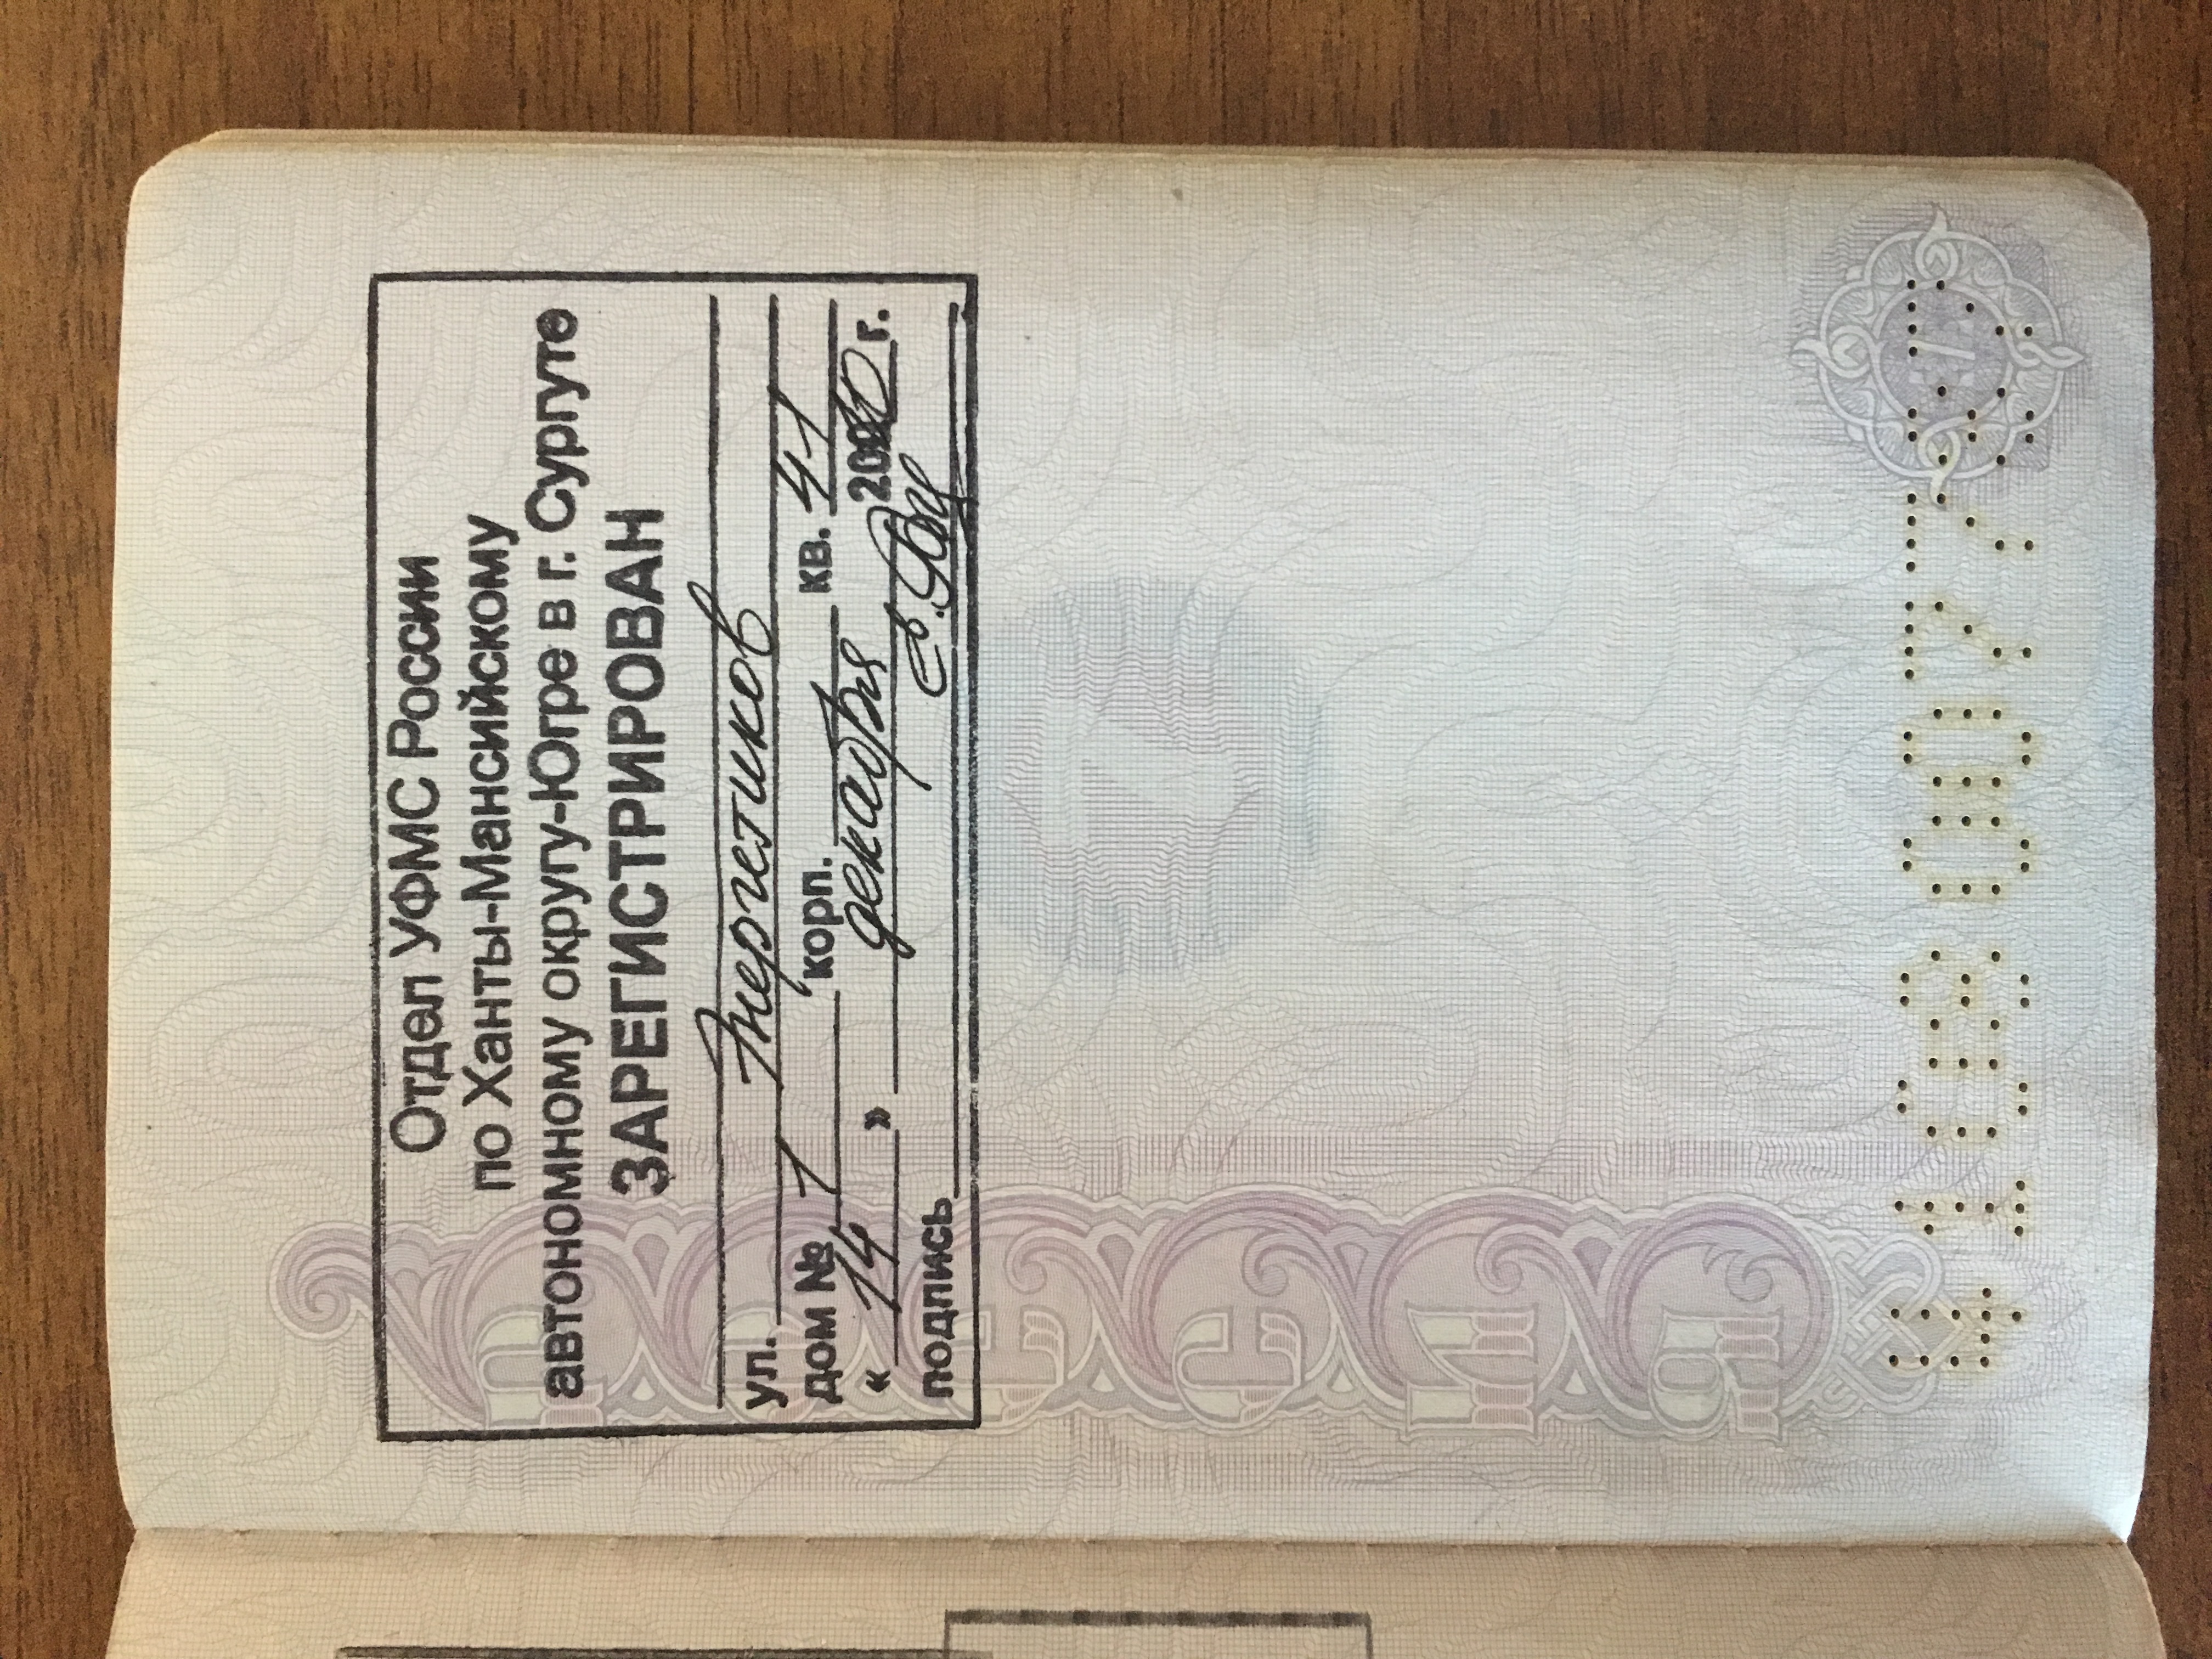 Отдел УФМС России
по Ханты-Мансийскому
автономному округу-Югре в г. Сургуте
ЗАРЕГИСТРИРОВАН
ул. Энергетиков
дом № 1 корп. кв. 41
« 14 » декабря 2010 г.
подпись
РОССИЯ
7